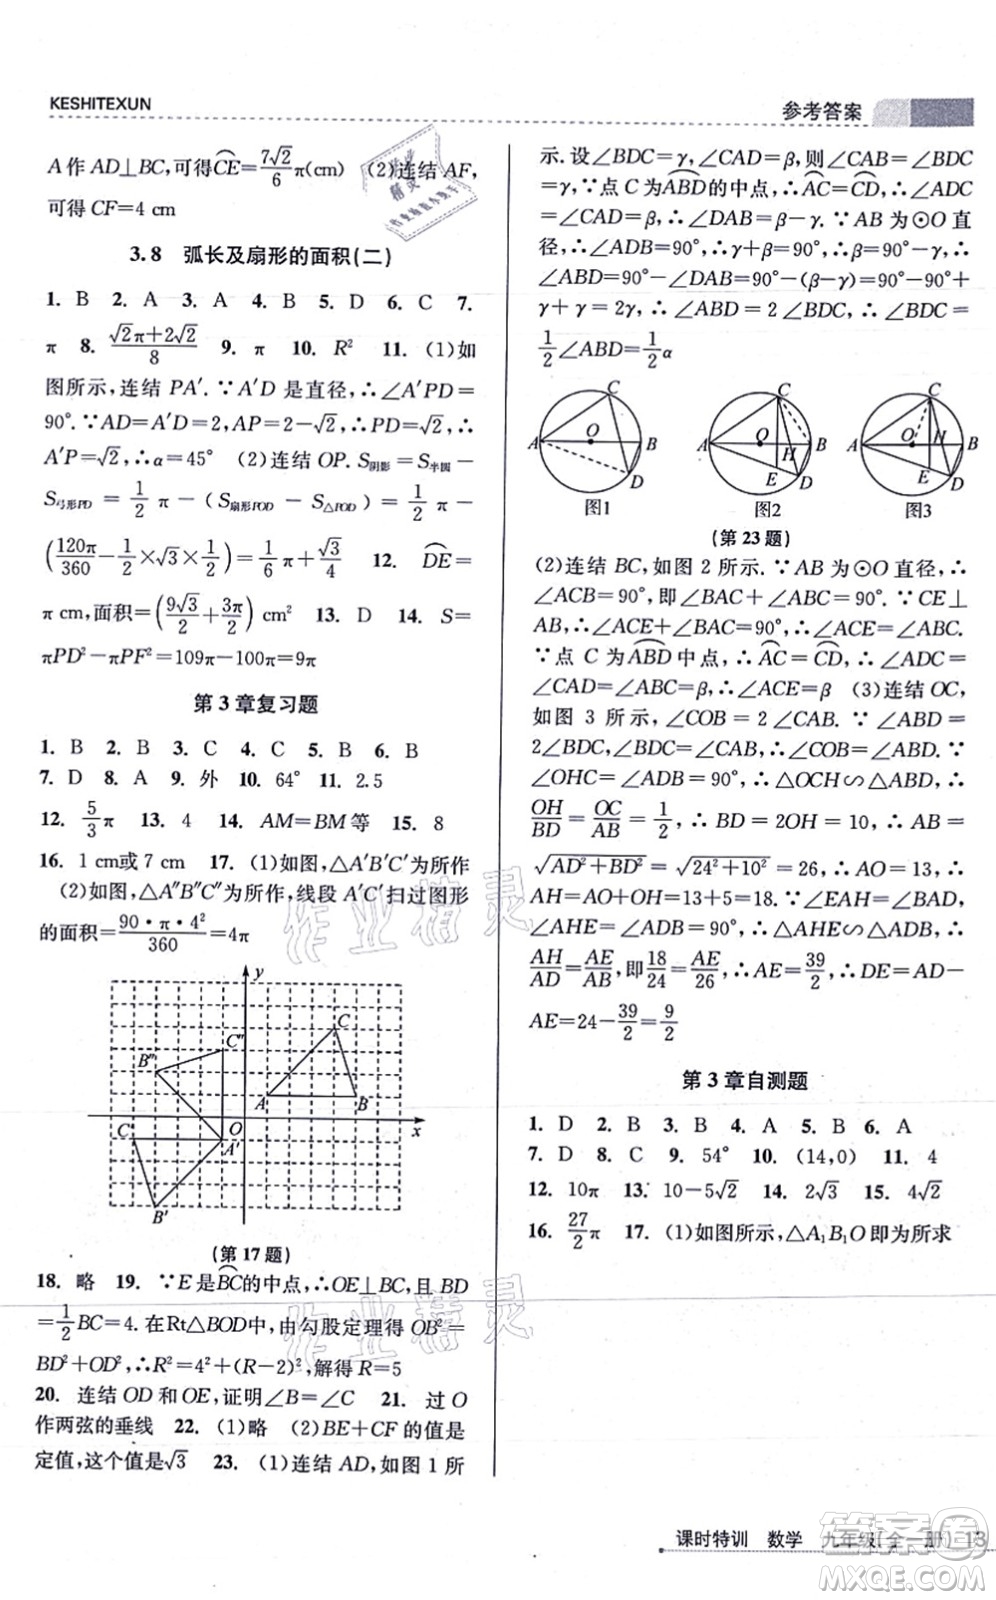 KESHITEXUN
参考答案
A作AD⊥BC,可得CE=7√2/6 π(cm) (2)连结AF,
可得CF=4 cm
3.8 弧长及扇形的面积(二)
1. B 2. A 3. A 4. B 5. D 6. C 7.
π 8. (√2π+2√2)/8 9. π 10. R² 11. (1)如
图所示,连结PA′.∵A′D是直径,∴∠A′PD=
90°.∵AD=A′D=2,AP=2-√2,∴PD=√2,∴
A′P=√2,∴α=45° (2)连结OP.S阴影=S半圆-
S弓形PD=1/2 π-(S扇形POD-S△POD)=1/2 π-
(120π/360-1/2×√3×1/2)=1/6 π+√3/4 12. DE=
π cm,面积=(9√3/2+3π/2) cm² 13. D 14. S=
πPD²-πPF²=109π-100π=9π
第3章复习题
1. B 2. B 3. C 4. C 5. B 6. C
7. D 8. A 9. 外 10. 64° 11. 2.5
12. 5/3 π 13. 4 14. AM=BM等 15. 8
16. 1 cm或7 cm 17. (1)如图,△A′B′C′为所作
(2)如图,△A″B″C″为所作,线段A′C′扫过图形
的面积=90·π·4²/360=4π
y
C
C″
B″
A
B
C
O
A′
x
B′
(第17题)
18. 略 19. ∵E是BC的中点,∴OE⊥BC,且BD
=1/2 BC=4.在Rt△BOD中,由勾股定理得OB²=
BD²+OD²,∴R²=4²+(R-2)²,解得R=5
20. 连结OD和OE,证明∠B=∠C 21. 过O
作两弦的垂线 22. (1)略 (2)BE+CF的值是
定值,这个值是√3 23. (1)连结AD,如图1所
示.设∠BDC=γ,∠CAD=β,则∠CAB=∠BDC
=γ.∵点C为ABD的中点,∴AC=CD,∴∠ADC
=∠CAD=β,∴∠DAB=β-γ.∵AB为⊙O直
径,∴∠ADB=90°,∴γ+β=90°,∴γ=90°-β,
∴∠ABD=90°-∠DAB=90°-β+γ=90°-90°+
γ+γ=2γ,∴∠ABD=2∠BDC,∴∠BDC=
1/2∠ABD=1/2 α
C
A
O
B
D
图1
C
A
O
B
H
E
D
图2
C
A
O
H
B
E
D
图3
(第23题)
(2)连结BC,如图2所示.∵AB为⊙O直径,∴
∠ACB=90°,即∠BAC+∠ABC=90°.∵CE⊥
AB,∴∠ACE+∠BAC=90°,∴∠ACE=∠ABC.
∵点C为ABD的中点,∴AC=CD,∴∠ADC=
∠CAD=∠ABC=β,∴∠ACE=β (3)连结OC,
如图3所示,∠COB=2∠CAB.∵∠ABD=
2∠BDC,∠BDC=∠CAB,∴∠COB=∠ABD.∵
∠OHC=∠ADB=90°,∴△OCH∽△ABD,∴
OH/BD=OC/AB=1/2,∴BD=2OH=10,∴AB=
√(AD²+BD²)=√(24²+10²)=26,∴AO=13,∴
AH=AO+OH=13+5=18.∵∠EAH=∠BAD,
∠AHE=∠ADB=90°,∴△AHE∽△ADB,∴
AH/AD=AE/AB,即18/24=AE/26,∴AE=39/2,∴DE=AD-
AE=24-39/2=9/2
第3章自测题
1. D 2. B 3. B 4. A 5. B 6. A
7. D 8. C 9. 54° 10. (14,0) 11. 4
12. 10π 13. 10-5√2 14. 2√3 15. 4√2
16. 27/2 π 17. (1)如图所示,△A₁B₁O即为所求
作业精灵
作业精灵
课时特训 数学 九年级(全一册) 13
答案圈
MXQE.COM